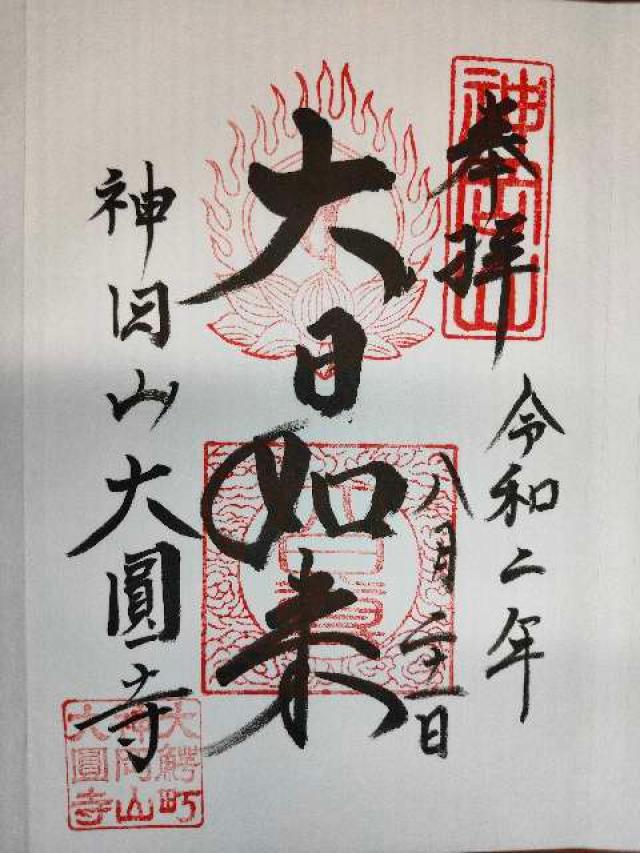 奉拝
令和二年
八月二十一日
大日如来
神岡山大圓寺
大鰐町
神岡山
大圓寺